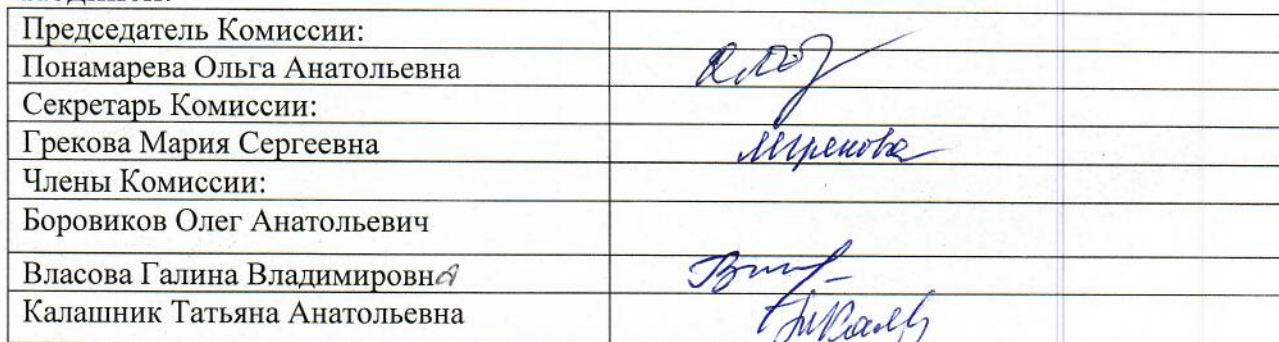 Председатель Комиссии:
Понамарева Ольга Анатольевна
Секретарь Комиссии:
Грекова Мария Сергеевна
МГрекова
Члены Комиссии:
Боровиков Олег Анатольевич
Власова Галина Владимировна
Калашник Татьяна Анатольевна